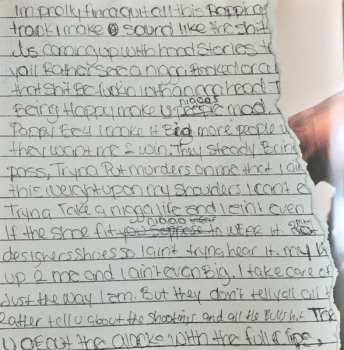 Im prolly finna quit all this Rapping
track I make sound like the shit
Us coming up with hood stories t
yall Rather see a nigga Booked or a
that shit Be fuckin in head T
Being Happy make u niggas mad.
Poppy Bou I make it Big more people
they want me 2 win. They steady Brin
pass, Tryna Put murders on me tht I ain
this weight upon my shoulders I cant e
Tryna Take a nigga life and I eint even
If the shoe fit nigga wear it.
designers shoes so I aint tryna hear it. my
up 2 me and I aint even Big. I take care of
Just the way I am. But they don't tell yall all
Ratter tell u about the shootings and all the Bullshit. The
U Beat the with the full